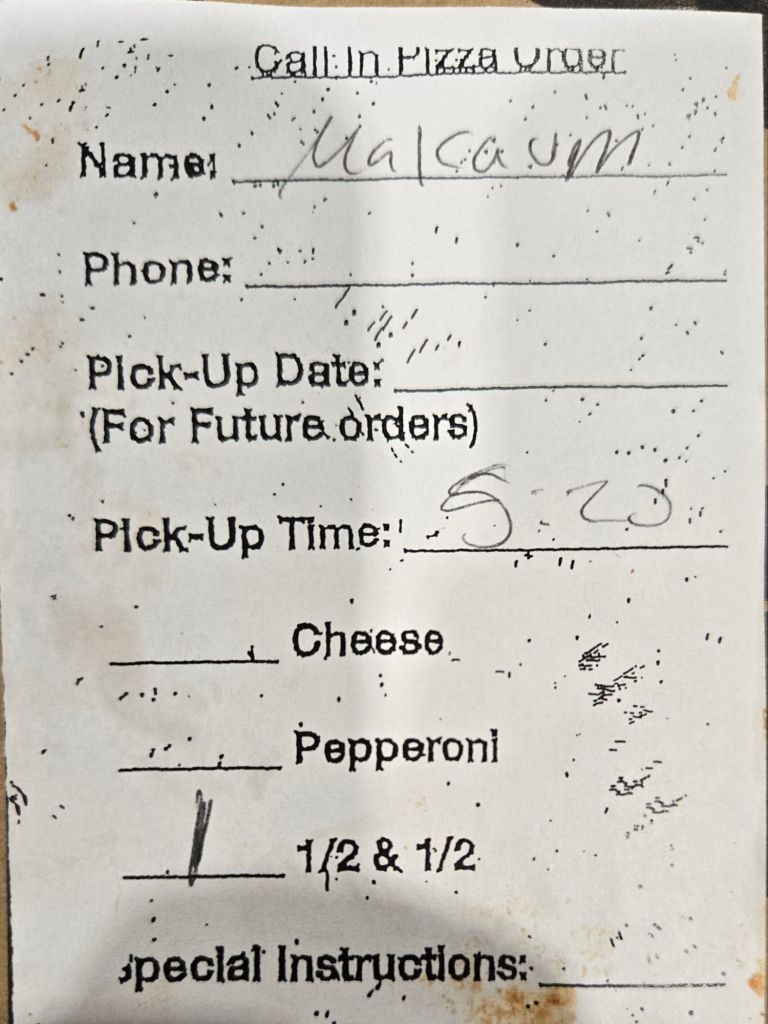 Call In Pizza Order
Name: Malcaum
Phone:
Pick-Up Date:
(For Future orders)
Pick-Up Time: 5:20
Cheese
Pepperoni
1 1/2 & 1/2
Special Instructions: